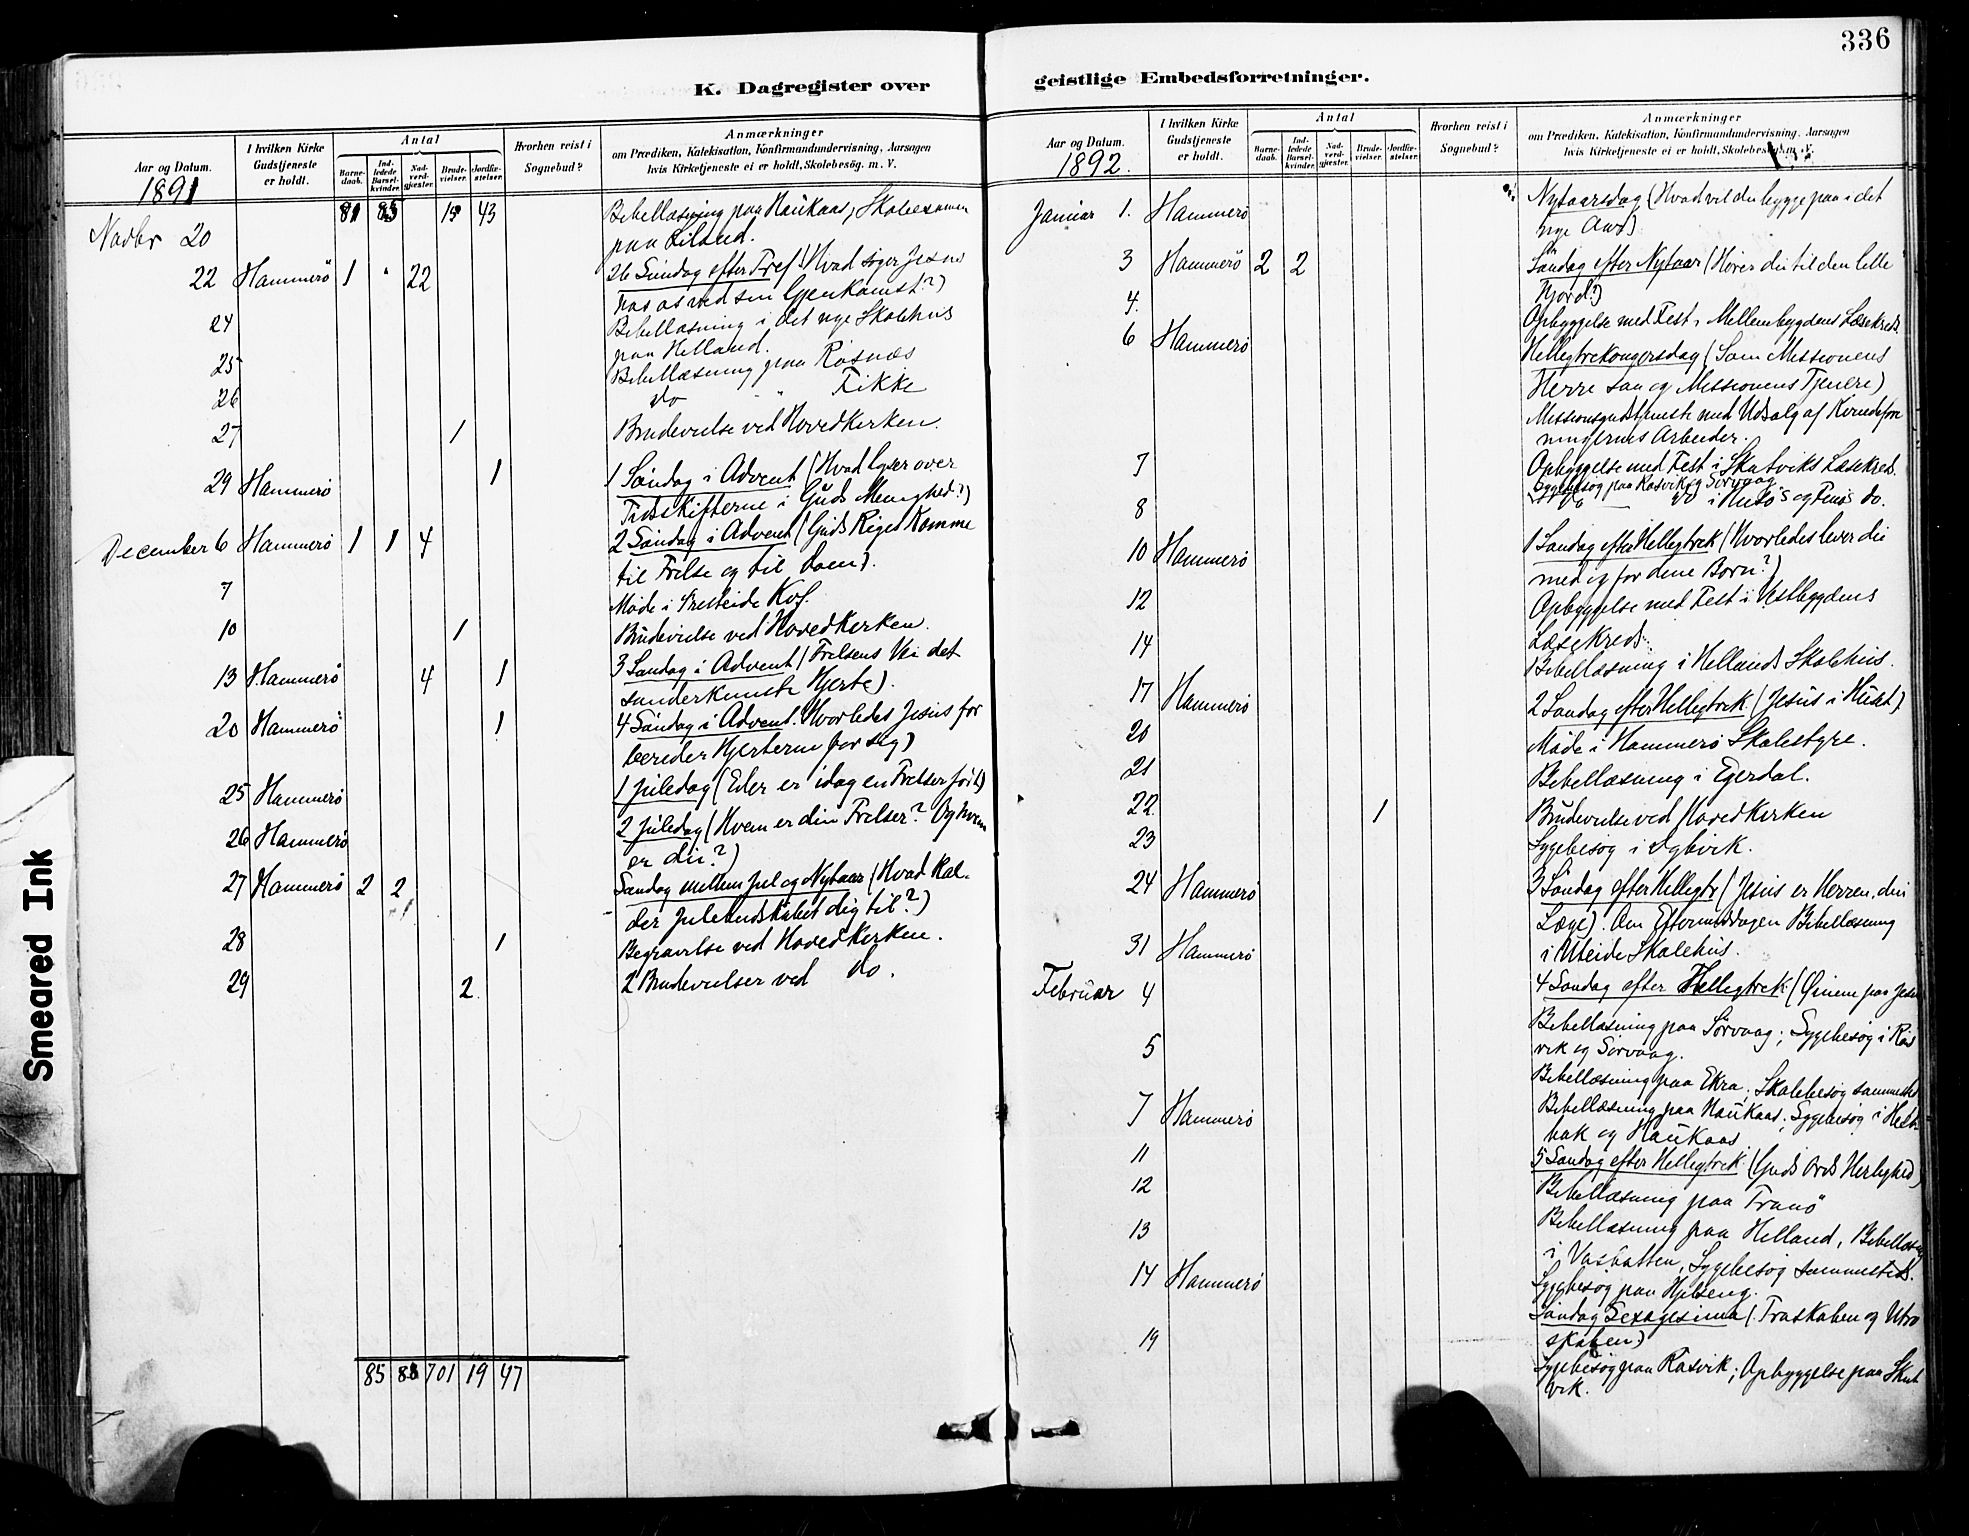 336
K. Dagregister over
geistlige Embedsforretninger.
Aar og Datum.
1891
I hvilken Kirke
Gudstjeneste
er holdt.
Antal
Barne-
daab.
Ind-
ledede
Barsel-
kvinder.
Nad-
verd-
gjester.
Brude-
vielser.
Jordfæ-
stelser.
Hvorhen reist i
Sognebud?
Anmærkninger
om Prædiken, Katekisation, Konfirmandundervisning, Aarsagen
hvis Kirketjeneste ei er holdt, Skolebesøg. m. V.
81 85 15 43
Novbr 20 Bibellæsning paa Haukaas, Skoleexamen
paa
22 Hammerø 1 " 22 26 Søndag efter Tref. (Hvad siger Jesus
hos os ved sin Gjenkomst?)
24 Bibellæsning i det nye Skolehus
paa Helland.
25 Bibellæsning paa Rosnæs
26 do " Fikke
27 1 Brudevielse ved Hovedkirken.
29 Hammerø 1 1 Søndag i Advent (Hvad lyser over
Tidsskifterne i Guds Menighed?)
December 6 Hammerø 1 1 4 2 Søndag i Advent (Guds Riges Komme
til Frelse og til Dom).
7 Møde i Presteide Kof.
10 1 Brudevielse ved Hovedkirken.
13 Hammerø 4 1 3 Søndag i Advent (Frelsens Vei det
sønderknuste Hjerte).
20 Hammerø 1 4 Søndag i Advent. Hvorledes Jesus for
bereder Hjerterne for sig)
25 Hammerø 1 Juledag (Eder er idag en Frelser født)
26 Hammerø 2 Juledag (Hvem er din Frelser? Og hvem
er du?)
27 Hammerø 2 2 Søndag mellem Jul og Nytaar (Hvad kal-
der Julebudskabet dig til?)
28 1 Begravelse ved Hovedkirken.
29 2 2 Brudevielser ved do.
85 88 701 19 47
Aar og Datum.
1892.
I hvilken Kirke
Gudstjeneste
er holdt.
Antal
Barne-
daab.
Ind-
ledede
Barsel-
kvinder.
Nad-
verd-
gjester.
Brude-
vielser.
Jordfæ-
stelser.
Hvorhen reist i
Sognebud?
Anmærkninger
om Prædiken, Katekisation, Konfirmandundervisning, Aarsagen
hvis Kirketjeneste ei er holdt, Skolebesøg. m. V.
Januar 1. Hammerø Nytaarsdag (Hvad vil du bygge paa i det
nye Aar?)
3 Hammerø 2 2 Søndag efter Nytaar (Hører du til den lille
Hjord?)
4. Opbyggelse med Fest i Mellembygdens Læsekreds.
6 Hammerø Helligtrekongersdag (Som Missionens
Herre saa og Missionens Tjenere)
Missionsgudstjeneste med Udsalg af Kvindefore
ningernes Arbeider.
7 Opbyggelse med Fest i Skutviks Læsekreds.
Sygebesøg paa Rosvik og Sørvaag
8 do do i og do.
10 Hammerø 1 Søndag efter Helligtrek (Hvorledes lever du
med og for dine Børn?)
12 Opbyggelse med Fest i Vestbygdens
Læsekreds.
14 Bibellæsning i Hellands Skolehus.
17 Hammerø 2 Søndag efter Helligtrek. (Jesus i Huset)
20 Møde i Hammerø Skolestyre.
21 Bibellæsning i Egerdal.
22 1 Brudevielse ved Hovedkirken
23 Sygebesøg i
24 Hammerø 3 Søndag efter Helligtr (Jesus er Herren, din
Læge). Om Eftermiddagen Bibellæsning
i Uteide Skolehus.
31 Hammerø 4 Søndag efter Helligtrek (Øinene paa Jesus
Februar 4 Bibellæsning paa Sørvaag; Sygebesøg i Ros
vik og Sørvaag.
5 Bibellæsning paa Ekra, Skolebesøg sammested
Bibellæsning paa Haukaas; Sygebesøg i
bak og Haukaas
7 Hammerø 5 Søndag efter Helligtrek (Guds Ords Herlighed)
11 Bibellæsning paa Tranø
12 Bibellæsning paa Helland, Bibellæsn
i Vasbotten, Sygebesøg sammesteds.
13 Sygebesøg paa
14 Hammerø Søndag Sexagesima (Troskaben og Utro
skaben)
19 Sygebesøg paa Rosvik; Opbyggelse paa Skut
vik.
Smeared Ink